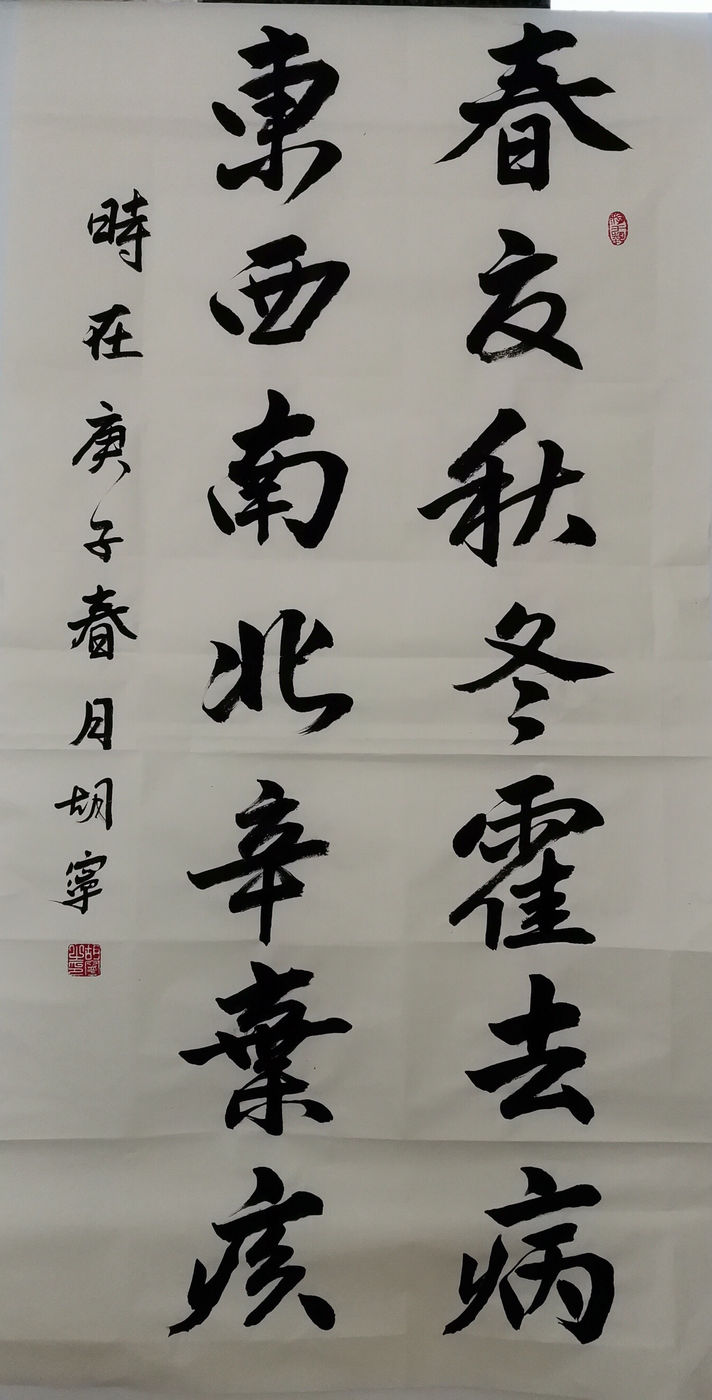 春夏秋冬霍去病
東西南北辛棄疾
時在庚子春月胡寧
胡寧之印